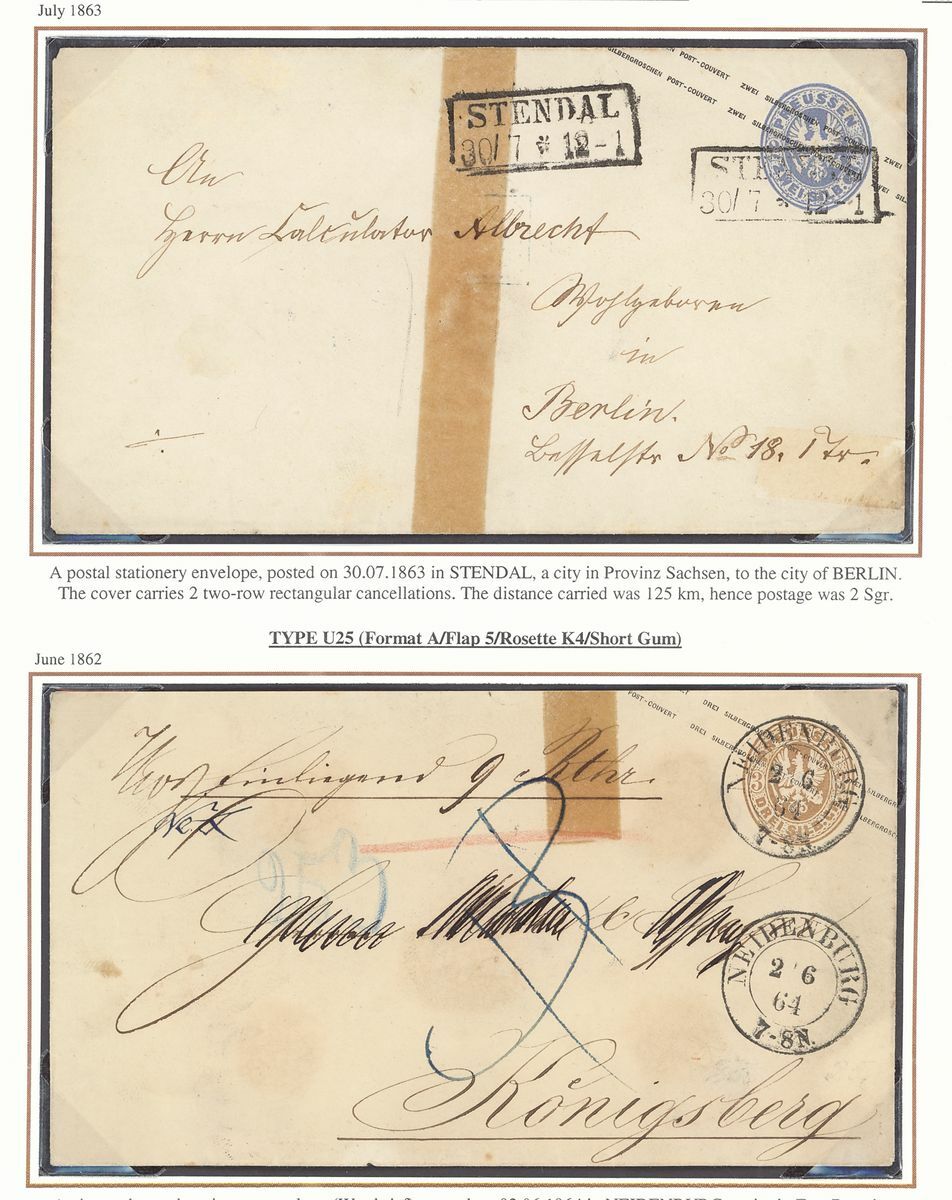 July 1863
SILBERGROSCHEN POST-COUVERT ZWEI SILBERGROSCHEN POST-COUVERT ZWEI
POST-COUVERT ZWEI SILBERGROSCHEN POST-COUVERT ZWEI SIL
PREUSSEN
ZWEI SILB. GR.
STENDAL
30/7 * 12-1
STENDAL
30/7 * 12-1
An
Herrn Calculator Albrecht
Wohlgeboren
in
Berlin.
Besselstr No 18. 1 Tr.
A postal stationery envelope, posted on 30.07.1863 in STENDAL, a city in Provinz Sachsen, to the city of BERLIN.
The cover carries 2 two-row rectangular cancellations. The distance carried was 125 km, hence postage was 2 Sgr.
TYPE U25 (Format A/Flap 5/Rosette K4/Short Gum)
June 1862
POST-COUVERT DREI SILBERGROSCHEN
POST-COUVERT DREI SILBERGROSCHEN
NEIDENBURG
2 6
64
7-8N.
DREI SILB. GR.
Einliegend 9 Rthr.
NEIDENBURG
2 6
64
7-8N.
Königsberg